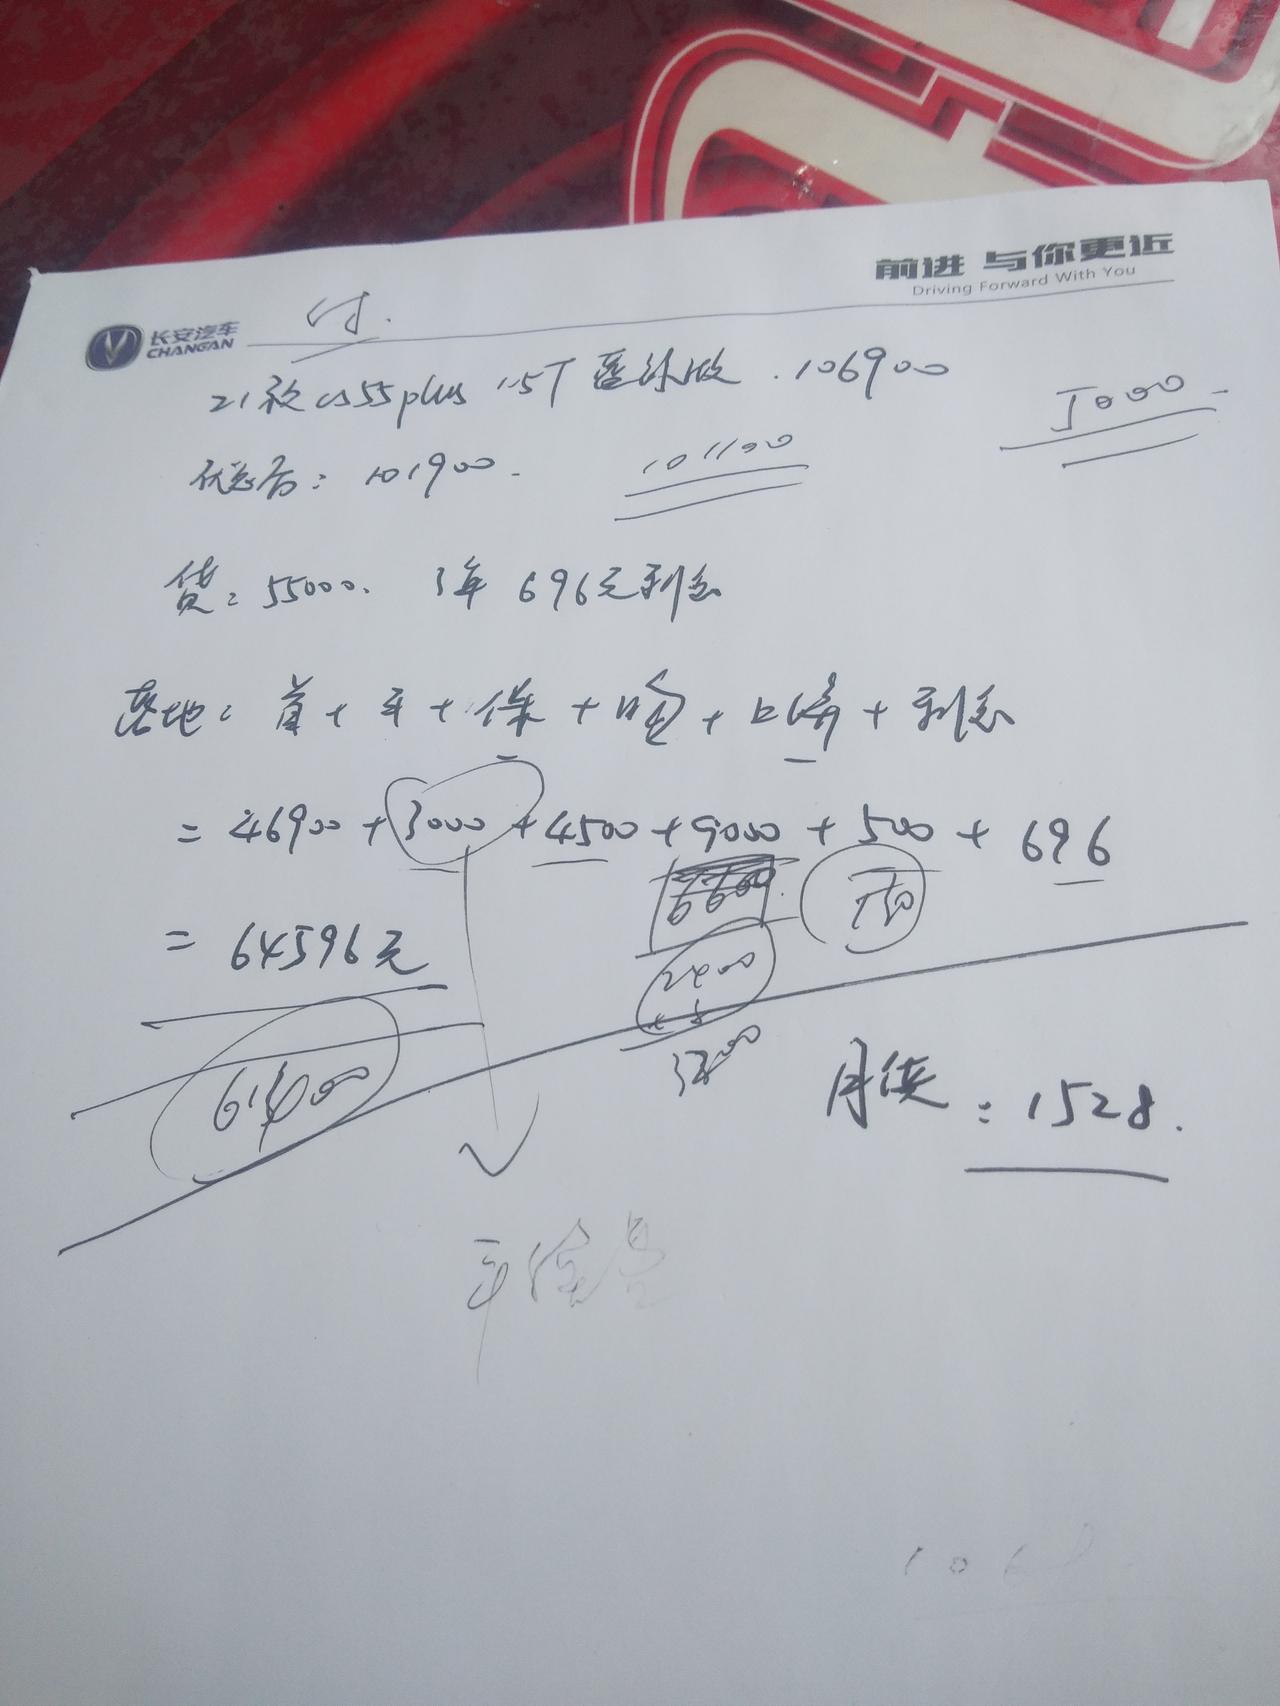 前进 与你更近
Driving Forward With You
长安汽车
CHANGAN
付.
21款cs55plus 1.5T 蓝鲸版.106900
5000
优惠后: 101900.
101100
贷:55000. 3年 696元利息
落地: 首+手+保+购+上牌+利息
=46900+3000+4500+9000+500+696
6600
750
=64596元
2400
3200
61400
月供:1528.